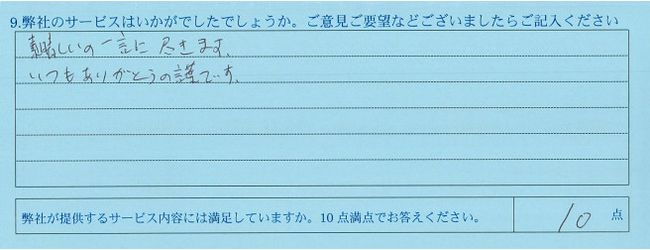 9.弊社のサービスはいかがでしたでしょうか。ご意見ご要望などございましたらご記入ください
素晴しいの一言に尽きます。
いつもありがとうの謹です。
弊社が提供するサービス内容には満足していますか。10点満点でお答えください。 10 点